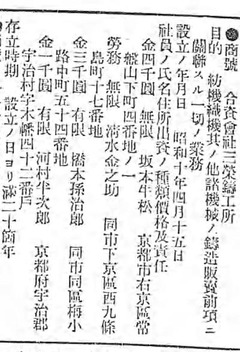 ●商號 合資會社三榮鑄工所
目的 紡機織機其ノ他諸機械ノ鑄造販賣前項ニ
關聯スル一切ノ業務
設立ノ年月日 昭和十年四月十五日
社員ノ氏名住所出資ノ種類價格及責任
金四千圓 無限 坂本牛松 京都市右京區常
盤山下町四番地ノ一
勞務 無限 清水金之助 同市下京區西九條
島町十七番地
金三千圓 有限 橋本孫治郎 同市同區梅小
路中町五十四番地
金一千圓 有限 河村半次郎 京都府宇治郡
宇治村字木幡四十二番戶
存立時期 設立ノ日ヨリ滿二十箇年